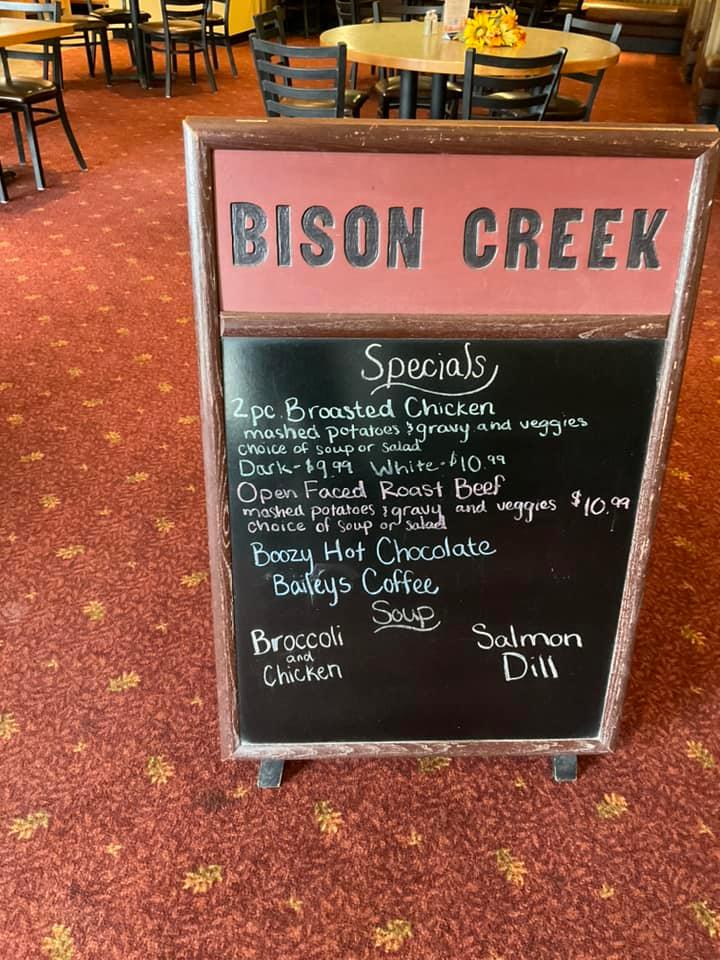 BISON CREEK
Specials
2pc. Broasted Chicken
mashed potatoes & gravy and veggies
choice of soup or salad
Dark-$9.99 White-$10.99
Open Faced Roast Beef
mashed potatoes & gravy and veggies $10.99
choice of soup or salad
Boozy Hot Chocolate
Baileys Coffee
Soup
Broccoli
and
Chicken
Salmon
Dill